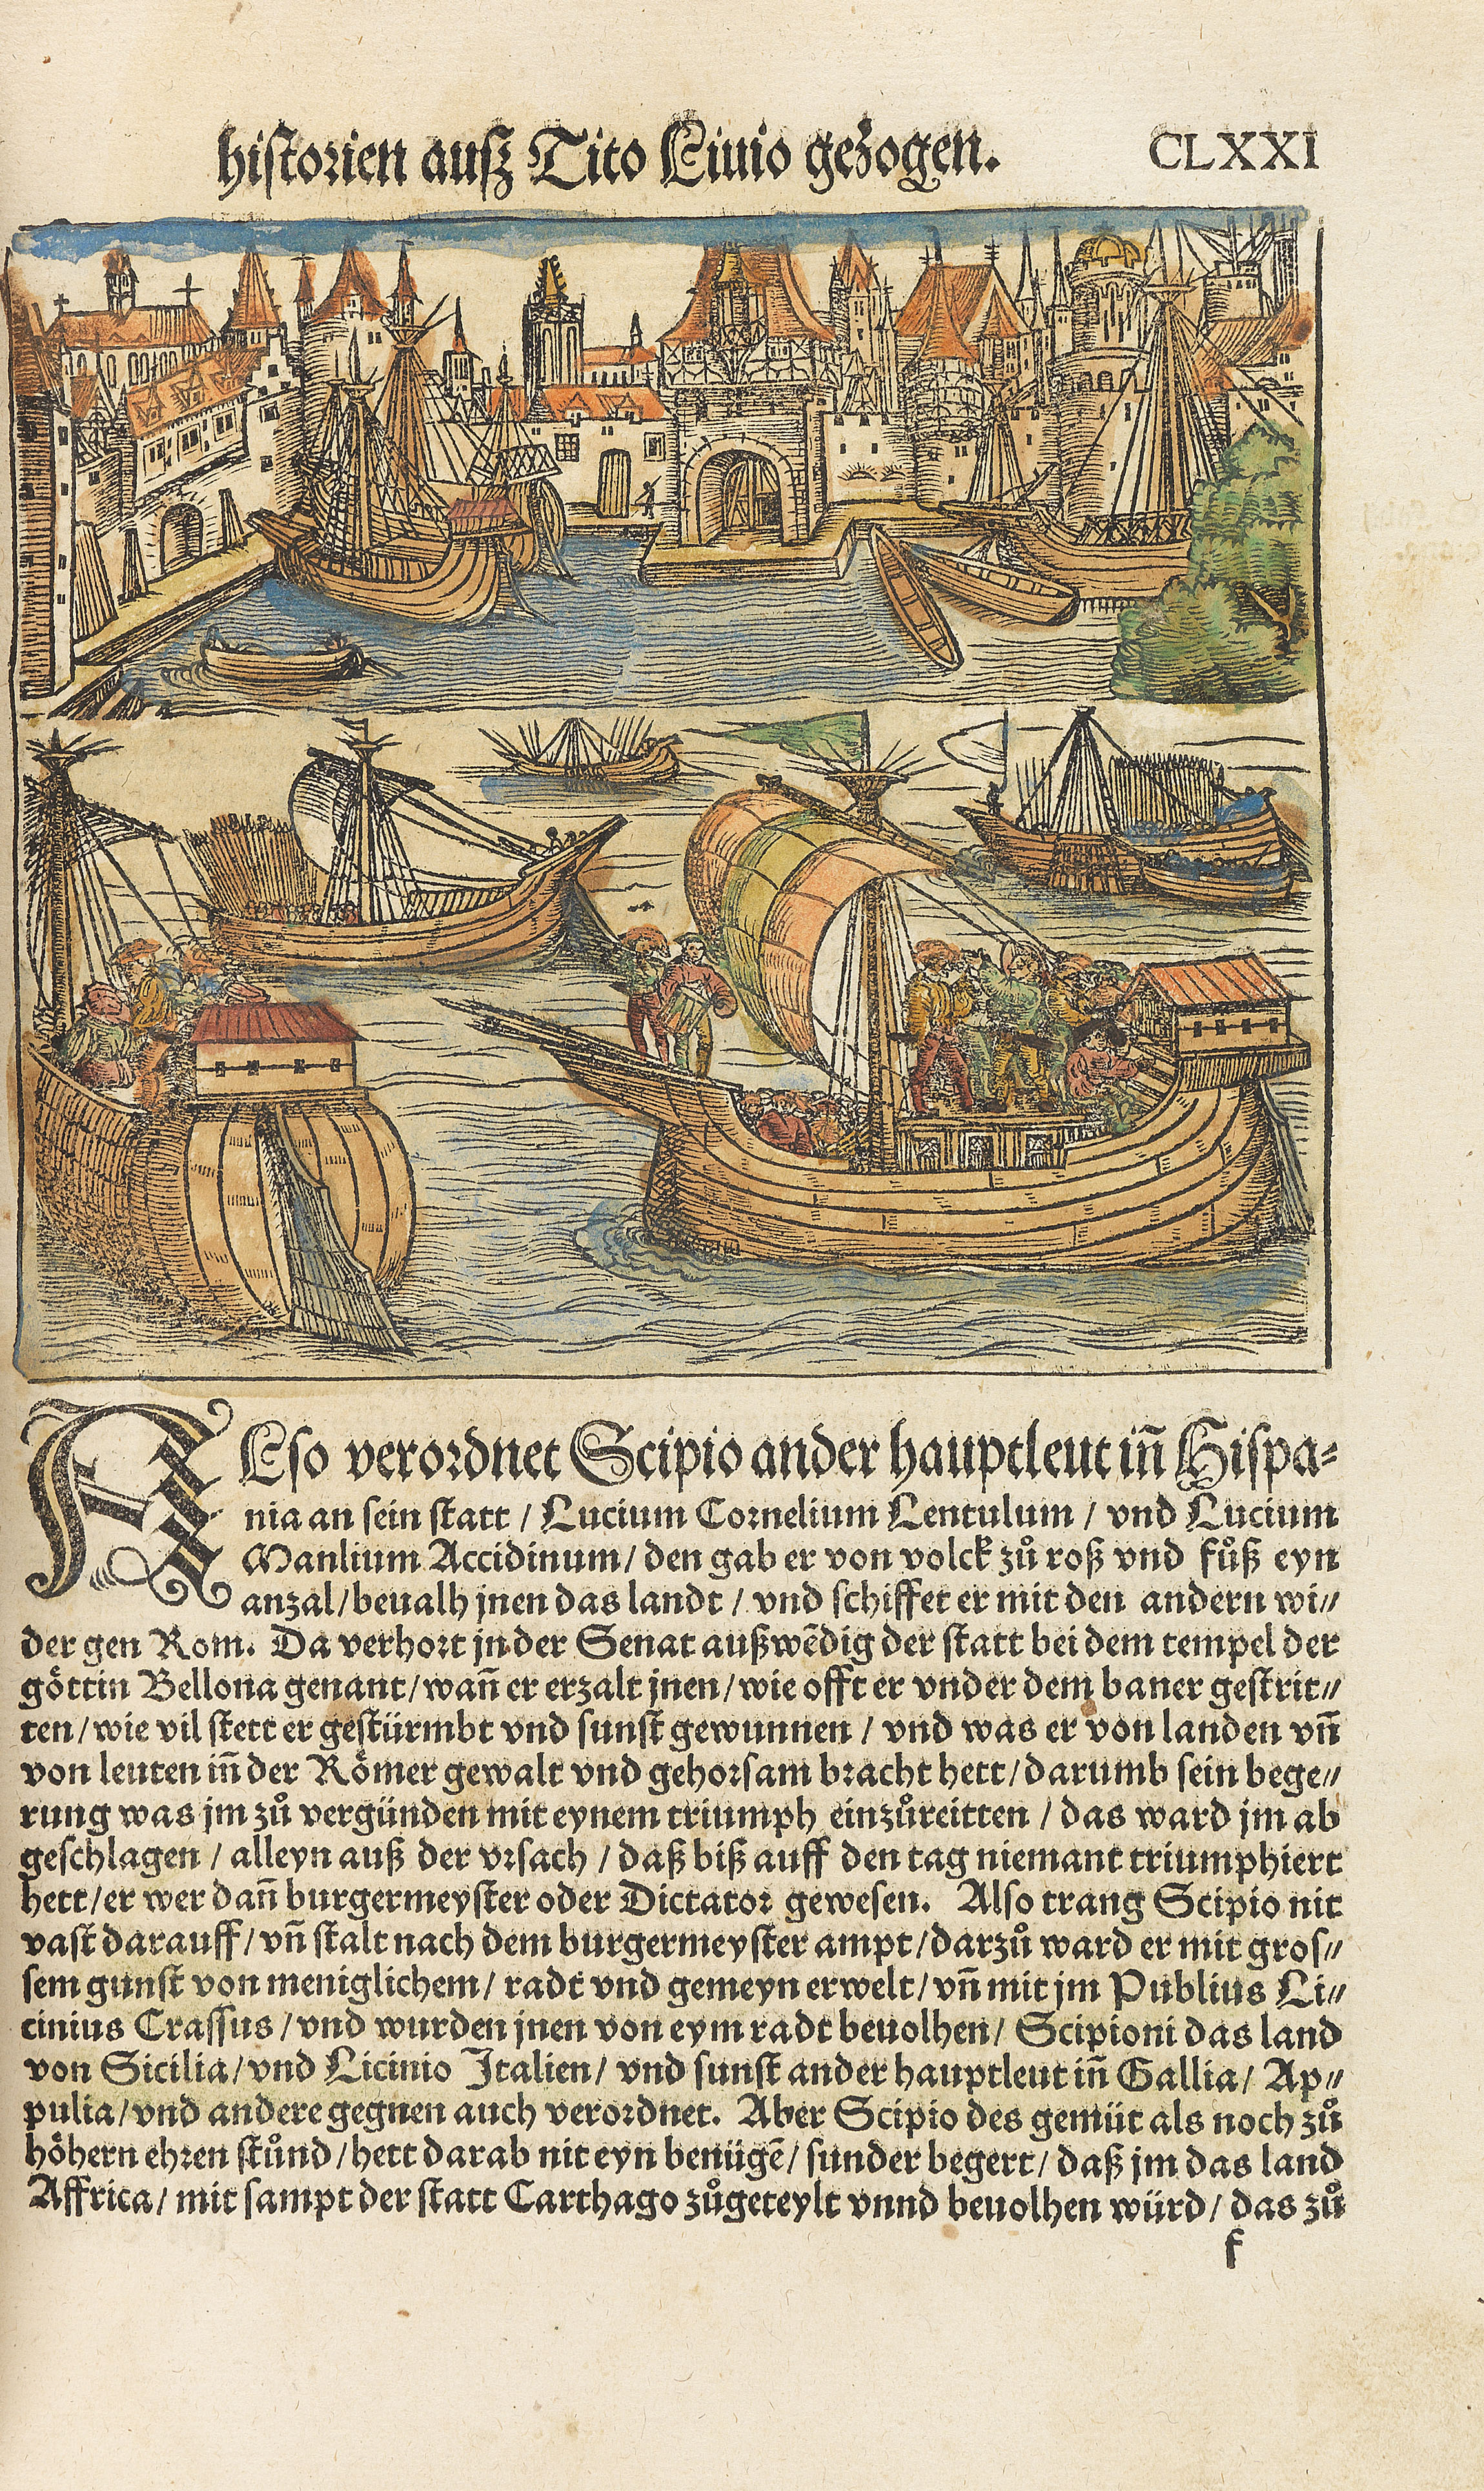 historien ausz Tito Liuio gezogen. CLXXI
ALso verordnet Scipio ander hauptleut iñ Hispa-
nia an sein statt / Lucium Cornelium Lentulum / vnd Lucium
Manlium Accidinum / den gab er von volck zů roß vnd fůß eyn
anzal / beualh jnen das landt / vnd schiffet er mit den andern wi⸗
der gen Rom. Da verhort jn der Senat außwẽdig der statt bei dem tempel der
göttin Bellona genant / wañ er erzalt jnen / wie offt er vnder dem baner gestrit⸗
ten / wie vil stett er gestürmbt vnd sunst gewunnen / vnd was er von landen vñ
von leuten iñ der Römer gewalt vnd gehorsam bracht hett / darumb sein bege⸗
rung was jm zů vergünden mit eynem triumph einzůreitten / das ward jm ab
geschlagen / alleyn auß der vrsach / daß biß auff den tag niemant triumphiert
hett / er wer dañ burgermeyster oder Dictator gewesen. Also trang Scipio nit
vast darauff / vñ stalt nach dem burgermeyster ampt / darzů ward er mit gros⸗
sem gunst von meniglichem / radt vnd gemeyn erwelt / vñ mit jm Publius Li⸗
cinius Crassus / vnd wurden jnen von eym radt beuolhen / Scipioni das land
von Sicilia / vnd Licinio Italien / vnd sunst ander hauptleut iñ Gallia / Ap⸗
pulia / vnd andere gegnen auch verordnet. Aber Scipio des gemüt als noch zů
höhern ehren stůnd / hett darab nit eyn benügẽ / sunder begert / daß jm das land
Affrica / mit sampt der statt Carthago zůgeteylt vnnd beuolhen würd / das zů
f